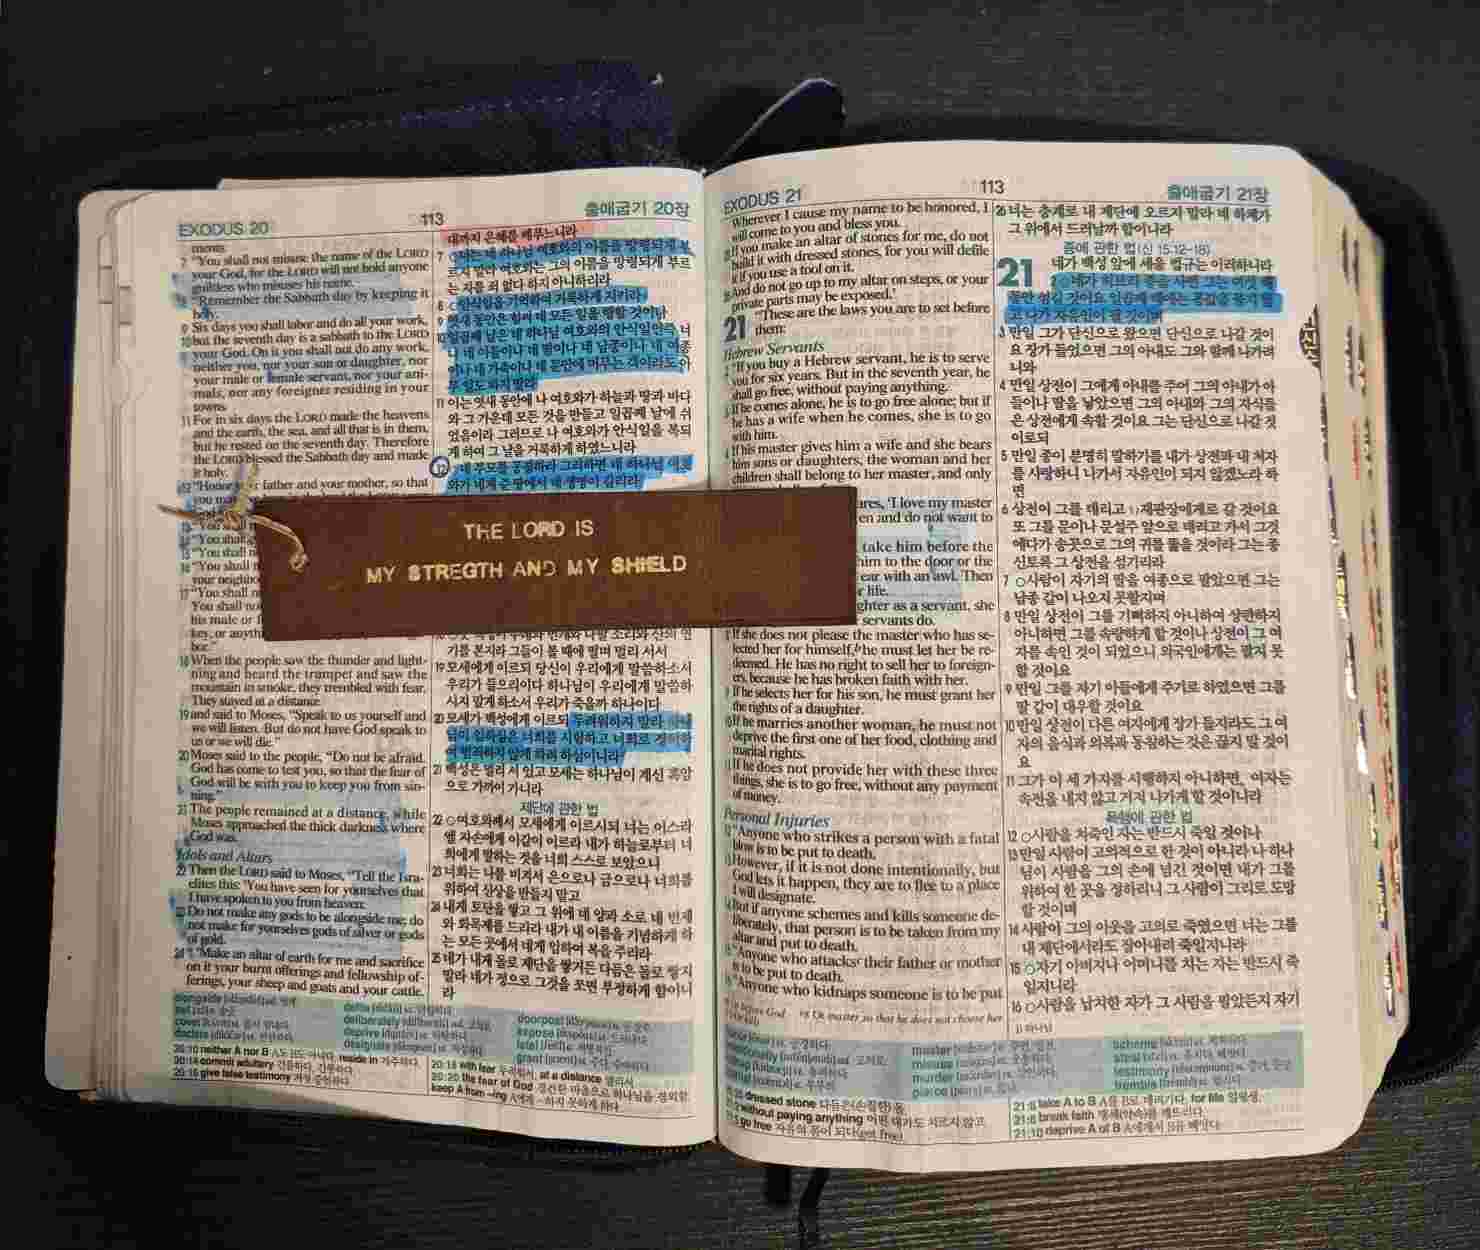 EXODUS 20
113
출애굽기 20장
ments.
7 "You shall not misuse the name of the LORD
your God, for the LORD will not hold anyone
guiltless who misuses his name.
8 "Remember the Sabbath day by keeping it
holy.
9 Six days you shall labor and do all your work,
10 but the seventh day is a sabbath to the LORD
your God. On it you shall not do any work,
neither you, nor your son or daughter, nor
your male or female servant, nor your ani-
mals, nor any foreigner residing in your
towns.
11 For in six days the LORD made the heavens
and the earth, the sea, and all that is in them,
but he rested on the seventh day. Therefore
the LORD blessed the Sabbath day and made
it holy.
12 "Honor your father and your mother, so that
you may
"You shall
15 "You shall n
16 "You shall
your neighbo
17 "You shall n
You shall no
his male or f
key, or anyth
bor."
18 When the people saw the thunder and light-
ning and heard the trumpet and saw the
mountain in smoke, they trembled with fear.
They stayed at a distance
19 and said to Moses, "Speak to us yourself and
we will listen. But do not have God speak to
us or we will die."
20 Moses said to the people, "Do not be afraid.
God has come to test you, so that the fear of
God will be with you to keep you from sin-
ning."
21 The people remained at a distance, while
Moses approached the thick darkness where
God was.
Idols and Altars
22 Then the LORD said to Moses, "Tell the Isra-
elites this: 'You have seen for yourselves that
I have spoken to you from heaven:
23 Do not make any gods to be alongside me; do
not make for yourselves gods of silver or gods
of gold.
24 "'Make an altar of earth for me and sacrifice
on it your burnt offerings and fellowship of-
ferings, your sheep and goats and your cattle.
대까지 은혜를 베푸느니라
7 ○너는 네 하나님 여호와의 이름을 망령되게 부
르지 말라 여호와는 그의 이름을 망령되게 부르
는 자를 죄 없다 하지 아니하리라
8 ○안식일을 기억하여 거룩하게 지키라
9 엿새 동안은 힘써 네 모든 일을 행할 것이나
10 일곱째 날은 네 하나님 여호와의 안식일인즉 너
나 네 아들이나 네 딸이나 네 남종이나 네 여종
이나 네 가축이나 네 문안에 머무는 객이라도 아
무 일도 하지 말라
11 이는 엿새 동안에 나 여호와가 하늘과 땅과 바다
와 그 가운데 모든 것을 만들고 일곱째 날에 쉬
었음이라 그러므로 나 여호와가 안식일을 복되
게 하여 그 날을 거룩하게 하였느니라
12 네 부모를 공경하라 그리하면 네 하나님 여호
와가 네게 준 땅에서 네 생명이 길리라
THE LORD IS
MY STREGTH AND MY SHIELD
가를 본지라 그들이 볼 때에 떨며 멀리 서서
19 모세에게 이르되 당신이 우리에게 말씀하소서
우리가 들으리이다 하나님이 우리에게 말씀하
시지 말게 하소서 우리가 죽을까 하나이다
20 모세가 백성에게 이르되 두려워하지 말라 하나
님이 임하심은 너희를 시험하고 너희로 경외하
여 범죄하지 않게 하려 하심이니라
21 백성은 멀리 서 있고 모세는 하나님이 계신 흑암
으로 가까이 가니라
제단에 관한 법
22 ○여호와께서 모세에게 이르시되 너는 이스라
엘 자손에게 이같이 이르라 내가 하늘로부터 너
희에게 말하는 것을 너희 스스로 보았으니
23 너희는 나를 비겨서 은으로나 금으로나 너희를
위하여 신상을 만들지 말고
24 내게 토단을 쌓고 그 위에 네 양과 소로 네 번제
와 화목제를 드리라 내가 내 이름을 기념하게 하
는 모든 곳에서 네게 임하여 복을 주리라
25 네가 내게 돌로 제단을 쌓거든 다듬은 돌로 쌓지
말라 네가 정으로 그것을 쪼면 부정하게 함이니
라
alongside
covet
deliberately
deprive
designate
doorpost
expose
fatal
grant
20:10 neither A nor B A도 B도 아니다. reside in 거주하다.
20:14 commit adultery 간음하다, 간통하다.
20:16 give false testimony 거짓 증언하다.
20:18 with fear 두려워서. at a distance 멀리서
20:20 the fear of God 경건한 마음으로 하나님을 경외함.
keep A from ~ing A에게 ~하지 못하게 하다
EXODUS 21
113
출애굽기 21장
Wherever I cause my name to be honored, I
will come to you and bless you.
If you make an altar of stones for me, do not
build it with dressed stones, for you will defile
it if you use a tool on it.
And do not go up to my altar on steps, or your
private parts may be exposed.'
21 "These are the laws you are to set before
them:
Hebrew Servants
2 "If you buy a Hebrew servant, he is to serve
you for six years. But in the seventh year, he
shall go free, without paying anything.
If he comes alone, he is to go free alone; but if
he has a wife when he comes, she is to go
with him.
If his master gives him a wife and she bears
him sons or daughters, the woman and her
children shall belong to her master, and only
ares, 'I love my master
en and do not want to
take him before the
him to the door or the
ear with an awl. Then
r life.
ghter as a servant, she
servants do.
If she does not please the master who has se-
lected her for himself, he must let her be re-
deemed. He has no right to sell her to foreign-
ers, because he has broken faith with her.
If he selects her for his son, he must grant her
the rights of a daughter.
If he marries another woman, he must not
deprive the first one of her food, clothing and
marital rights.
If he does not provide her with these three
things, she is to go free, without any payment
of money.
Personal Injuries
12 "Anyone who strikes a person with a fatal
blow is to be put to death.
However, if it is not done intentionally, but
God lets it happen, they are to flee to a place
I will designate.
But if anyone schemes and kills someone de-
liberately, that person is to be taken from my
altar and put to death.
"Anyone who attacks their father or mother
is to be put to death.
"Anyone who kidnaps someone is to be put
26 너는 층계로 내 제단에 오르지 말라 네 하체가
그 위에서 드러날까 함이니라
종에 관한 법(신 15:12-18)
21 네가 백성 앞에 세울 법규는 이러하니라
2 네가 히브리 종을 사면 그는 여섯 해
동안 섬길 것이요 일곱째 해에는 몸값을 물지 않
고 나가 자유인이 될 것이며
3 만일 그가 단신으로 왔으면 단신으로 나갈 것이
요 장가 들었으면 그의 아내도 그와 함께 나가려
니와
4 만일 상전이 그에게 아내를 주어 그의 아내가 아
들이나 딸을 낳았으면 그의 아내와 그의 자식들
은 상전에게 속할 것이요 그는 단신으로 나갈 것
이로되
5 만일 종이 분명히 말하기를 내가 상전과 내 처자
를 사랑하니 나가서 자유인이 되지 않겠노라 하
면
6 상전이 그를 데리고 1)재판장에게로 갈 것이요
또 그를 문이나 문설주 앞으로 데리고 가서 그것
에다가 송곳으로 그의 귀를 뚫을 것이라 그는 종
신토록 그 상전을 섬기리라
7 ○사람이 자기의 딸을 여종으로 팔았으면 그는
남종 같이 나오지 못할지며
8 만일 상전이 그를 기뻐하지 아니하여 상관하지
아니하면 그를 속량하게 할 것이나 상전이 그 여
자를 속인 것이 되었으니 외국인에게는 팔지 못
할 것이요
9 만일 그를 자기 아들에게 주기로 하였으면 그를
딸 같이 대우할 것이요
10 만일 상전이 다른 여자에게 장가 들지라도 그 여
자의 음식과 의복과 동침하는 것은 끊지 말 것이
요
11 그가 이 세 가지를 시행하지 아니하면, 여자는
속전을 내지 않고 거저 나가게 할 것이니라
폭행에 관한 법
12 ○사람을 쳐죽인 자는 반드시 죽일 것이나
13 만일 사람이 고의적으로 한 것이 아니라 나 하나
님이 사람을 그의 손에 넘긴 것이면 내가 그를
위하여 한 곳을 정하리니 그 사람이 그리로 도망
할 것이며
14 사람이 그의 이웃을 고의로 죽였으면 너는 그를
내 제단에서라도 잡아내려 죽일지니라
15 ○자기 아버지나 어머니를 치는 자는 반드시 죽
일지니라
16 ○사람을 납치한 자가 그 사람을 팔았든지 자기
1) 하나님
master
misuse
murder
pierce
scheme
steal
testimony
tremble
dressed stone 다듬은(손질한) 돌
without paying anything 어떤 대가도 치르지 않고
go free 자유의 몸이 되다(get free)
21:6 take A to B A를 B로 데려가다. for life 일평생.
21:8 break faith 맹세(약속)를 깨뜨리다.
21:10 deprive A of B A에게서 B를 빼앗다.